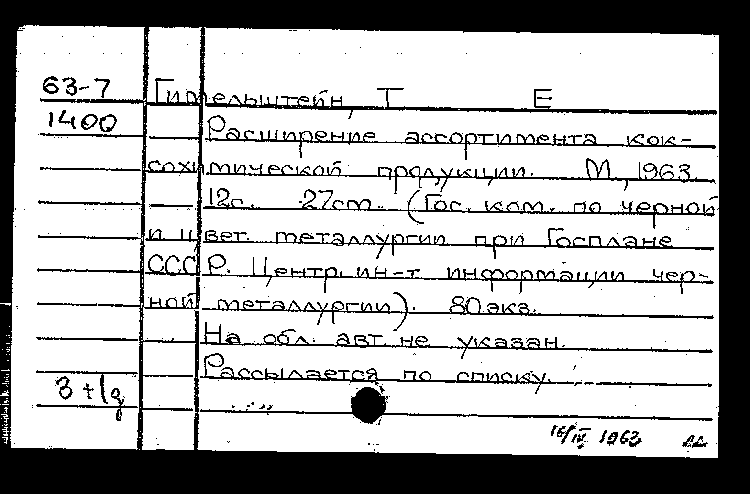 63-7 Гительштейн, Т Е
1400 Расширение ассортимента кок-
сохимической продукции. М., 1963.
12с. 27см. (Гос. ком. по черной
и цвет. металлургии при Госплане
СССР. Центр. ин-т информации чер-
ной металлургии). 80 экз.
На обл. авт. не указан.
Рассылается по списку.
16/IV 1963